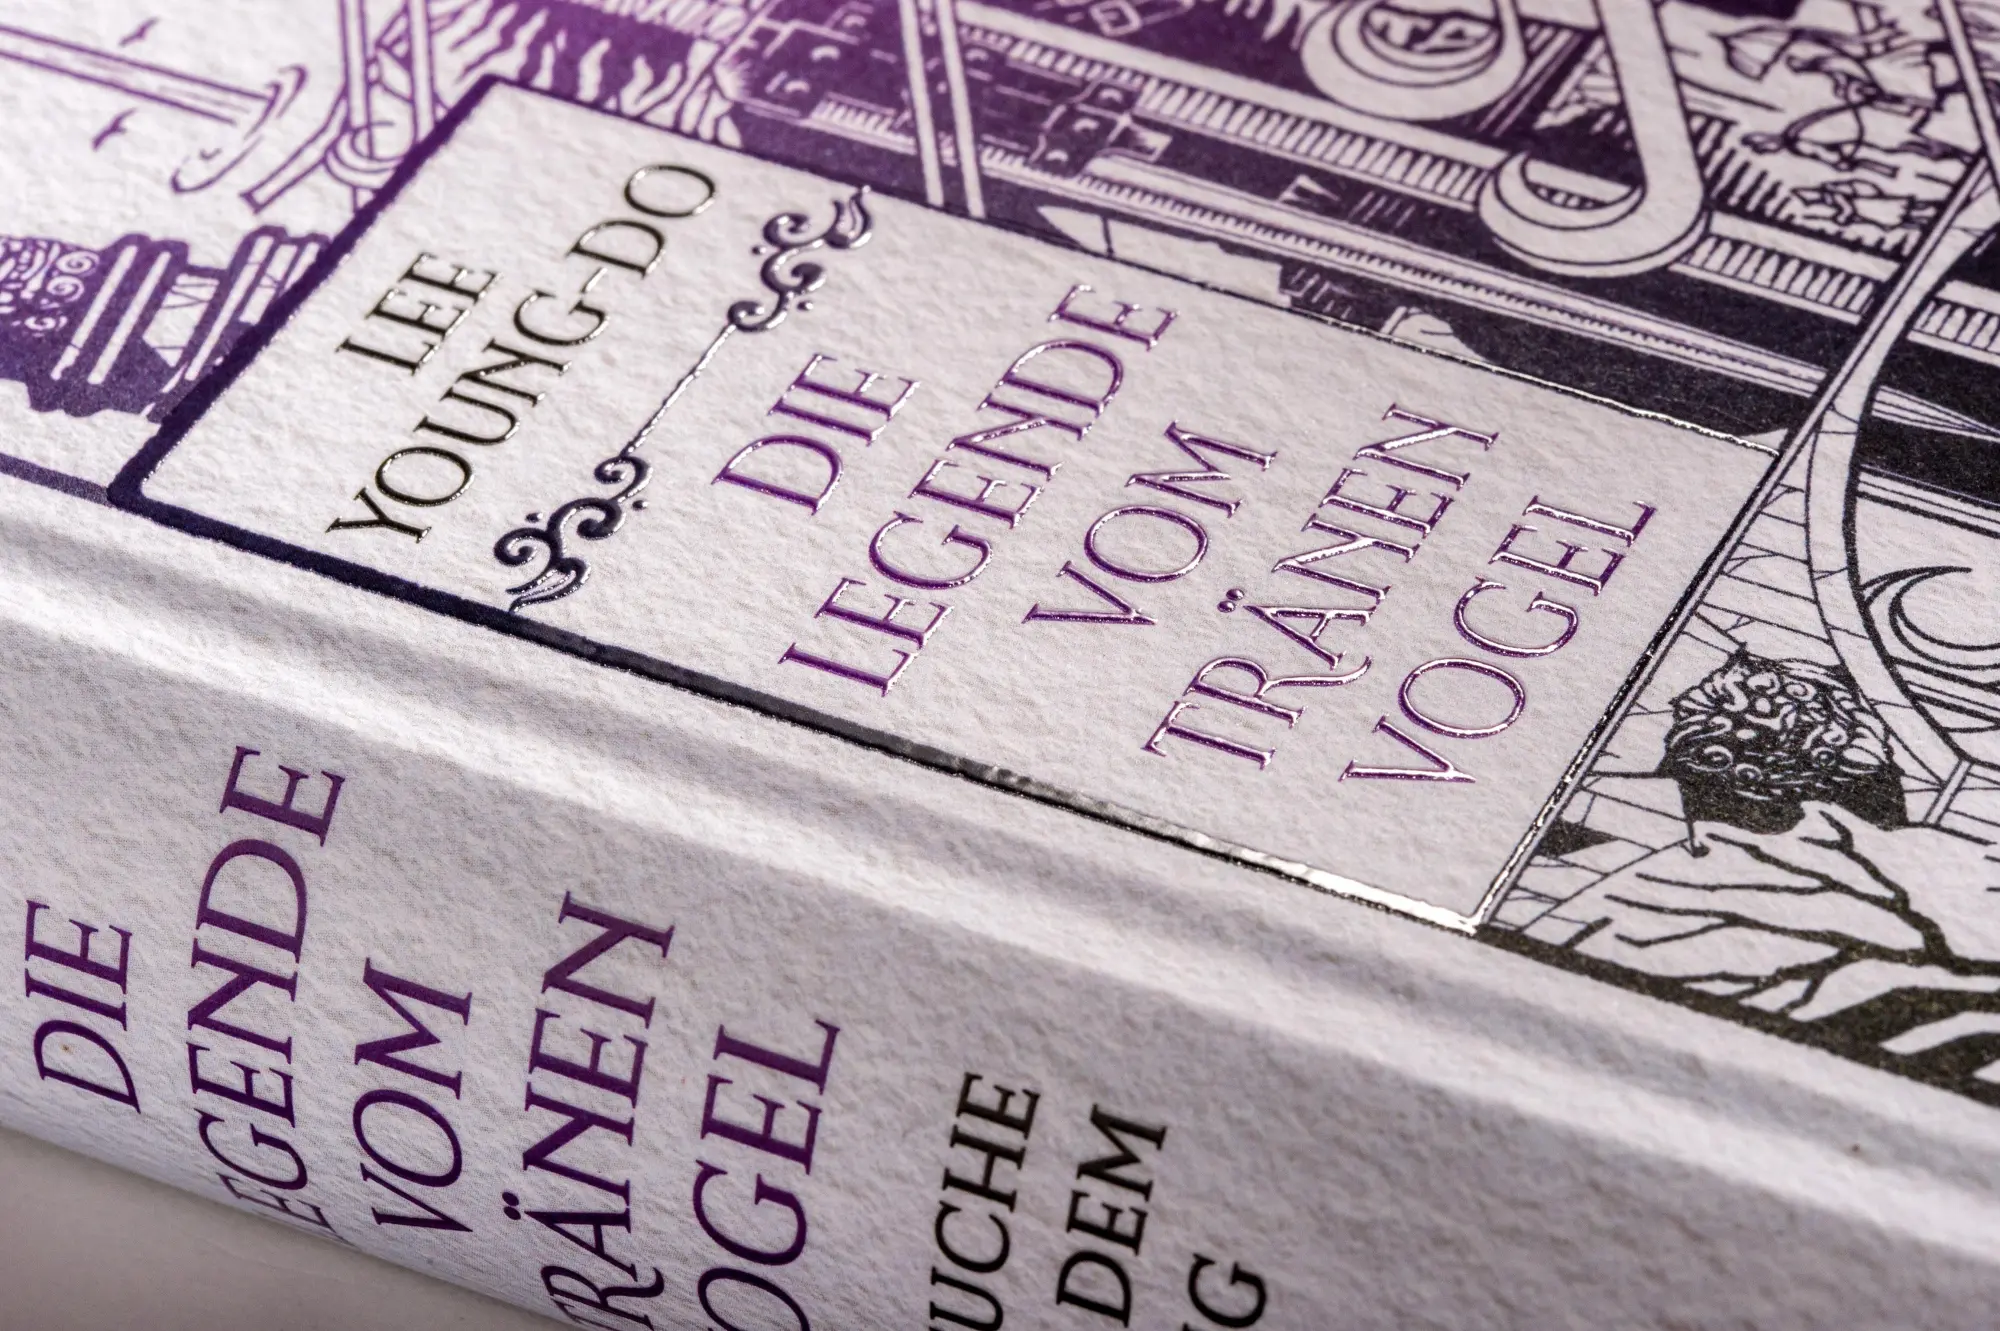 LEE
YOUNG-DO
DIE
LEGENDE
VOM
TRÄNEN
VOGEL
DIE
LEGENDE
VOM
TRÄNEN
VOGEL
DEM